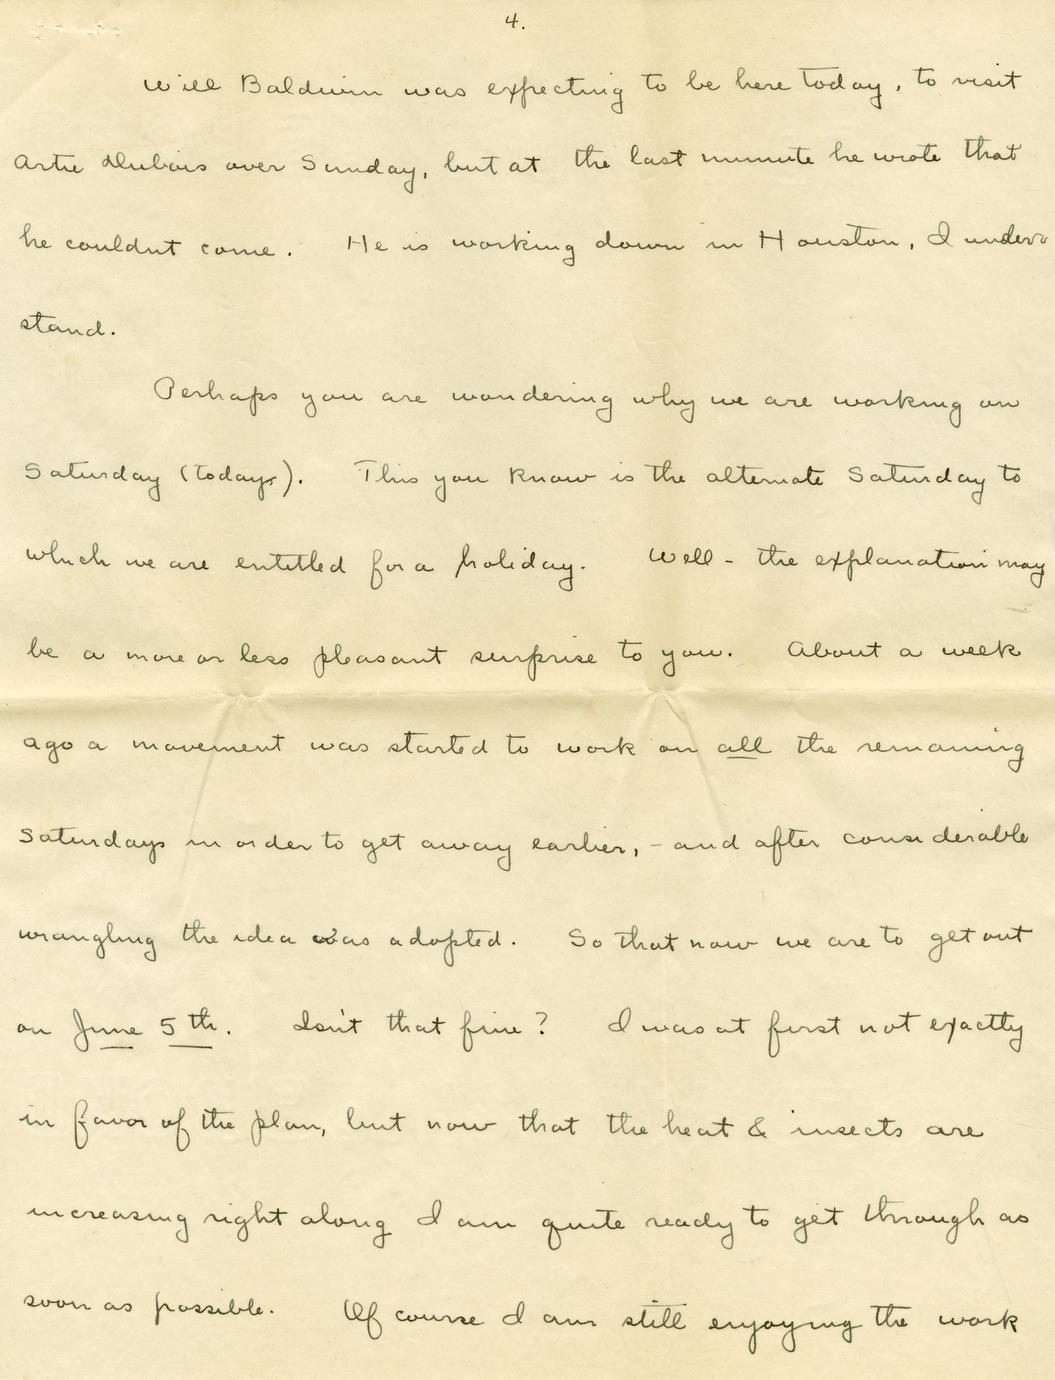 4.
Will Baldwin was expecting to be here today, to visit
Artie Dubois over Sunday, but at the last minute he wrote that
he couldnt come. He is working down in Houston, I under-
stand.
Perhaps you are wondering why we are working on
Saturday (today). This you know is the alternate Saturday to
which we are entitled for a holiday. Well - the explanation may
be a more or less pleasant surprise to you. About a week
ago a movement was started to work on all the remaining
Saturdays in order to get away earlier, - and after considerable
wrangling the idea was adopted. So that now we are to get out
on June 5th. Isn't that fine? I was at first not exactly
in favor of the plan, but now that the heat & insects are
increasing right along I am quite ready to get through as
soon as possible. Of course I am still enjoying the work